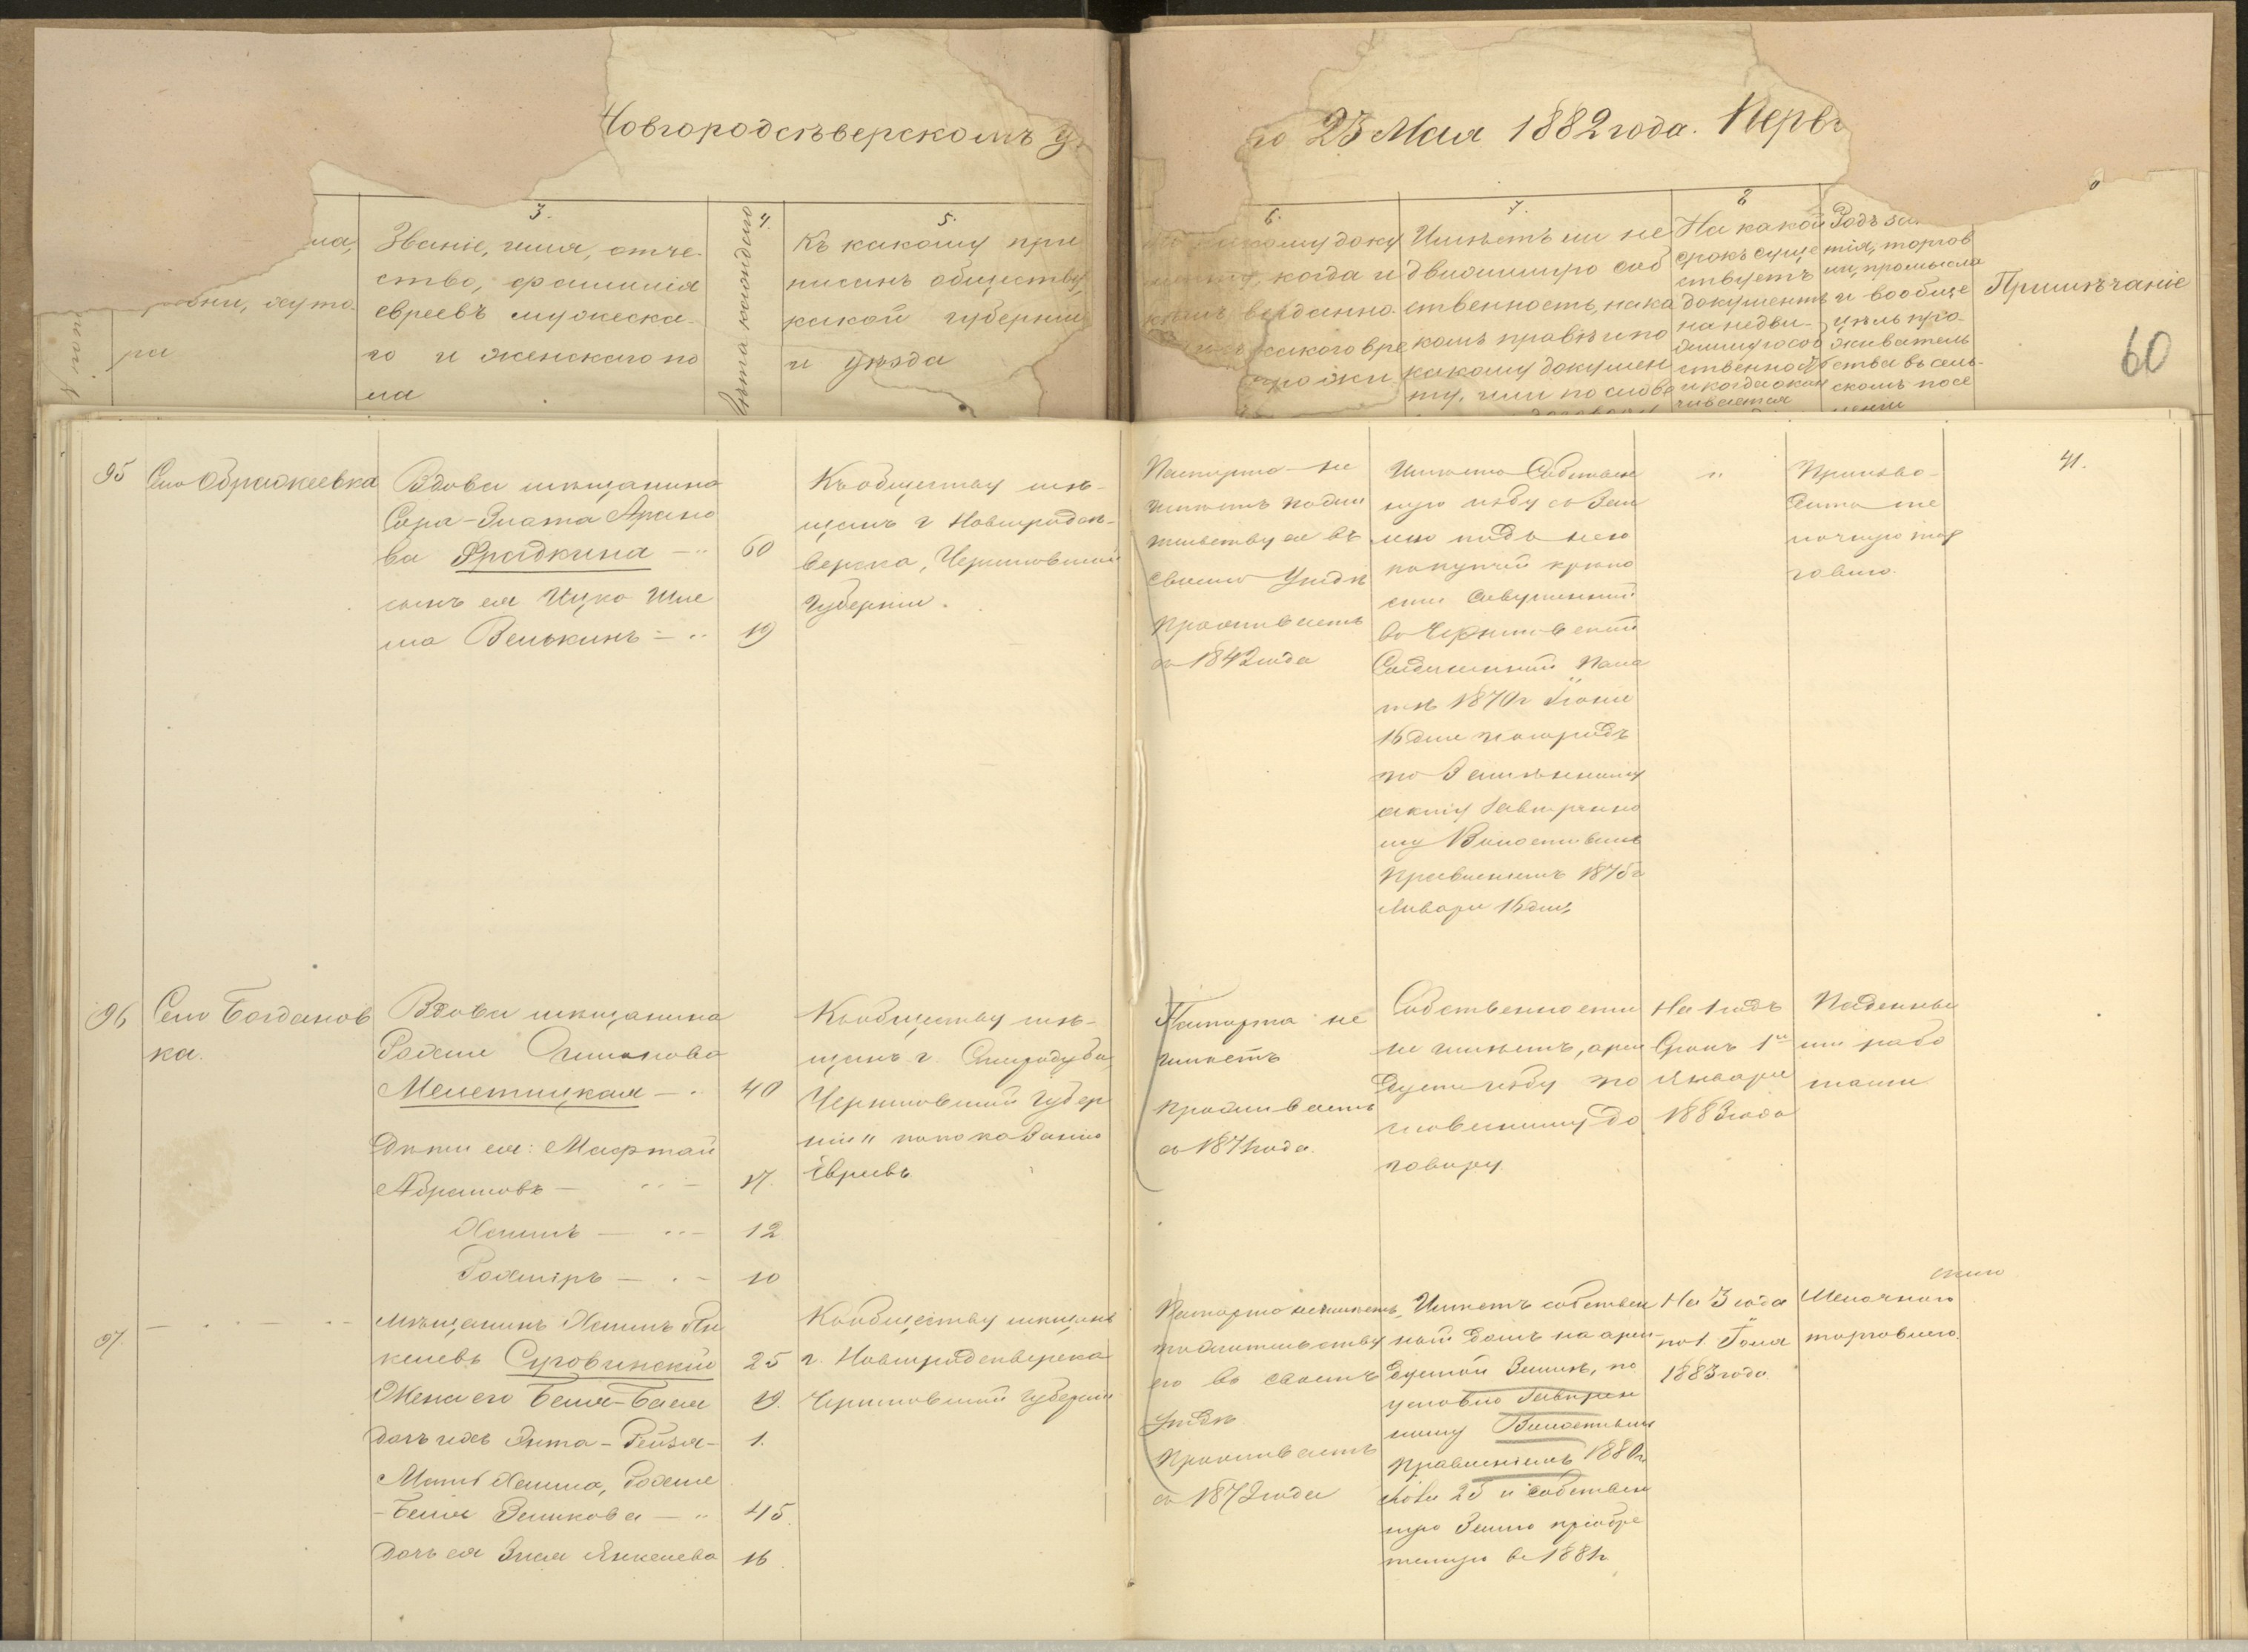 Новгородсѣверскомъ у
го 23 Мая 1882 года. Перв
3.
4.
5.
6.
7.
8
ла,
вни, хуто
ра
Званіе, имя, отче
ство, фамилія
евреевъ мужеска
го и женскаго по
ла
Лѣта каждаго
Къ какому при
писанъ обществу,
какой губерніи
и уѣзда
какому доку
когда и
кѣмъ выданно
какого вре
прожи
Имѣетъ ли не
движимую соб
ственность, на ка
комъ правѣ и по
какому докумен
ту, или по слове
На какой
срокъ суще
ствуетъ
документъ
на недви-
жимую соб
ственность
и когда окан
чивается
Родъ за
тія, торгов
ли, промысла
и вообще
цѣль про-
живатель
ства въ сель-
скомъ посе
леніи
Примѣчаніе
60
95
Село Ображеевка
Вдова мѣщанина
Сора-Злата Ароно
ва Фрадкина
60
сынъ ея Ицко Шле
ма Велькинъ
19
Къ обществу мѣ-
щанъ г. Новгородсѣ-
верска, Черниговской
Губерніи.
Паспорта не
имѣетъ по жи
тельству ея въ
своемъ уѣздѣ
Проживаетъ
съ 1842 года
Имѣетъ Собствен
ную избу съ Зем
лею подъ нею
по купчей крѣпо
сти совершенной
въ Черниговской
Соединенной Пала
тѣ 1870 г. Іюня
16 дня
по
акту
му Волостнымъ
Правленіемъ 1875 г
Января 16 дня
"
Произво-
дитъ ме
лочную тор
говлю.
41.
96
Село Богданов
ка.
Вдова мѣщанина
Рохля
Мелетицкая
40
Дѣти ея: Мафтай
Абрамовъ
17.
Хаимъ
12
10
Къ обществу мѣ-
щанъ г. Стародуба,
Черниговской Губер
ніи по показанію
Евреевъ
Паспорта не
имѣетъ
Проживаетъ
съ 1871 года.
Собственности
не имѣетъ, арен
дуетъ избу по
словесному до
говору
На 1 годъ
Срокъ 1го
Января
1883 года
Поденны
ми рабо
тами
97.
Мѣщанинъ Хаимъ Ян
келевъ Суровинскій
25
Жена его Бейля-Бася
19.
дочь ихъ Энта-Рейзя
1.
Мать Хаима, Рохля
-Бейля Зеликова
45.
Дочь ея Злая Янкелева
16
Къ обществу мѣщанъ
г. Новгородсѣверска
Черниговской Губерніи
Паспорта не имѣетъ
по жительству
его въ своемъ
уѣздѣ
Проживаетъ
съ 1872 года
Имѣетъ собствен
ный домъ на арен-
дуемой Землѣ, по
условію
ному Волостнымъ
Правленіемъ 1880 г.
25 и собствен
ную Землю пріобре
тенную въ 1881 г.
На 3 года
по 1 Іюля
1883 года
Мелочною
торговлею.